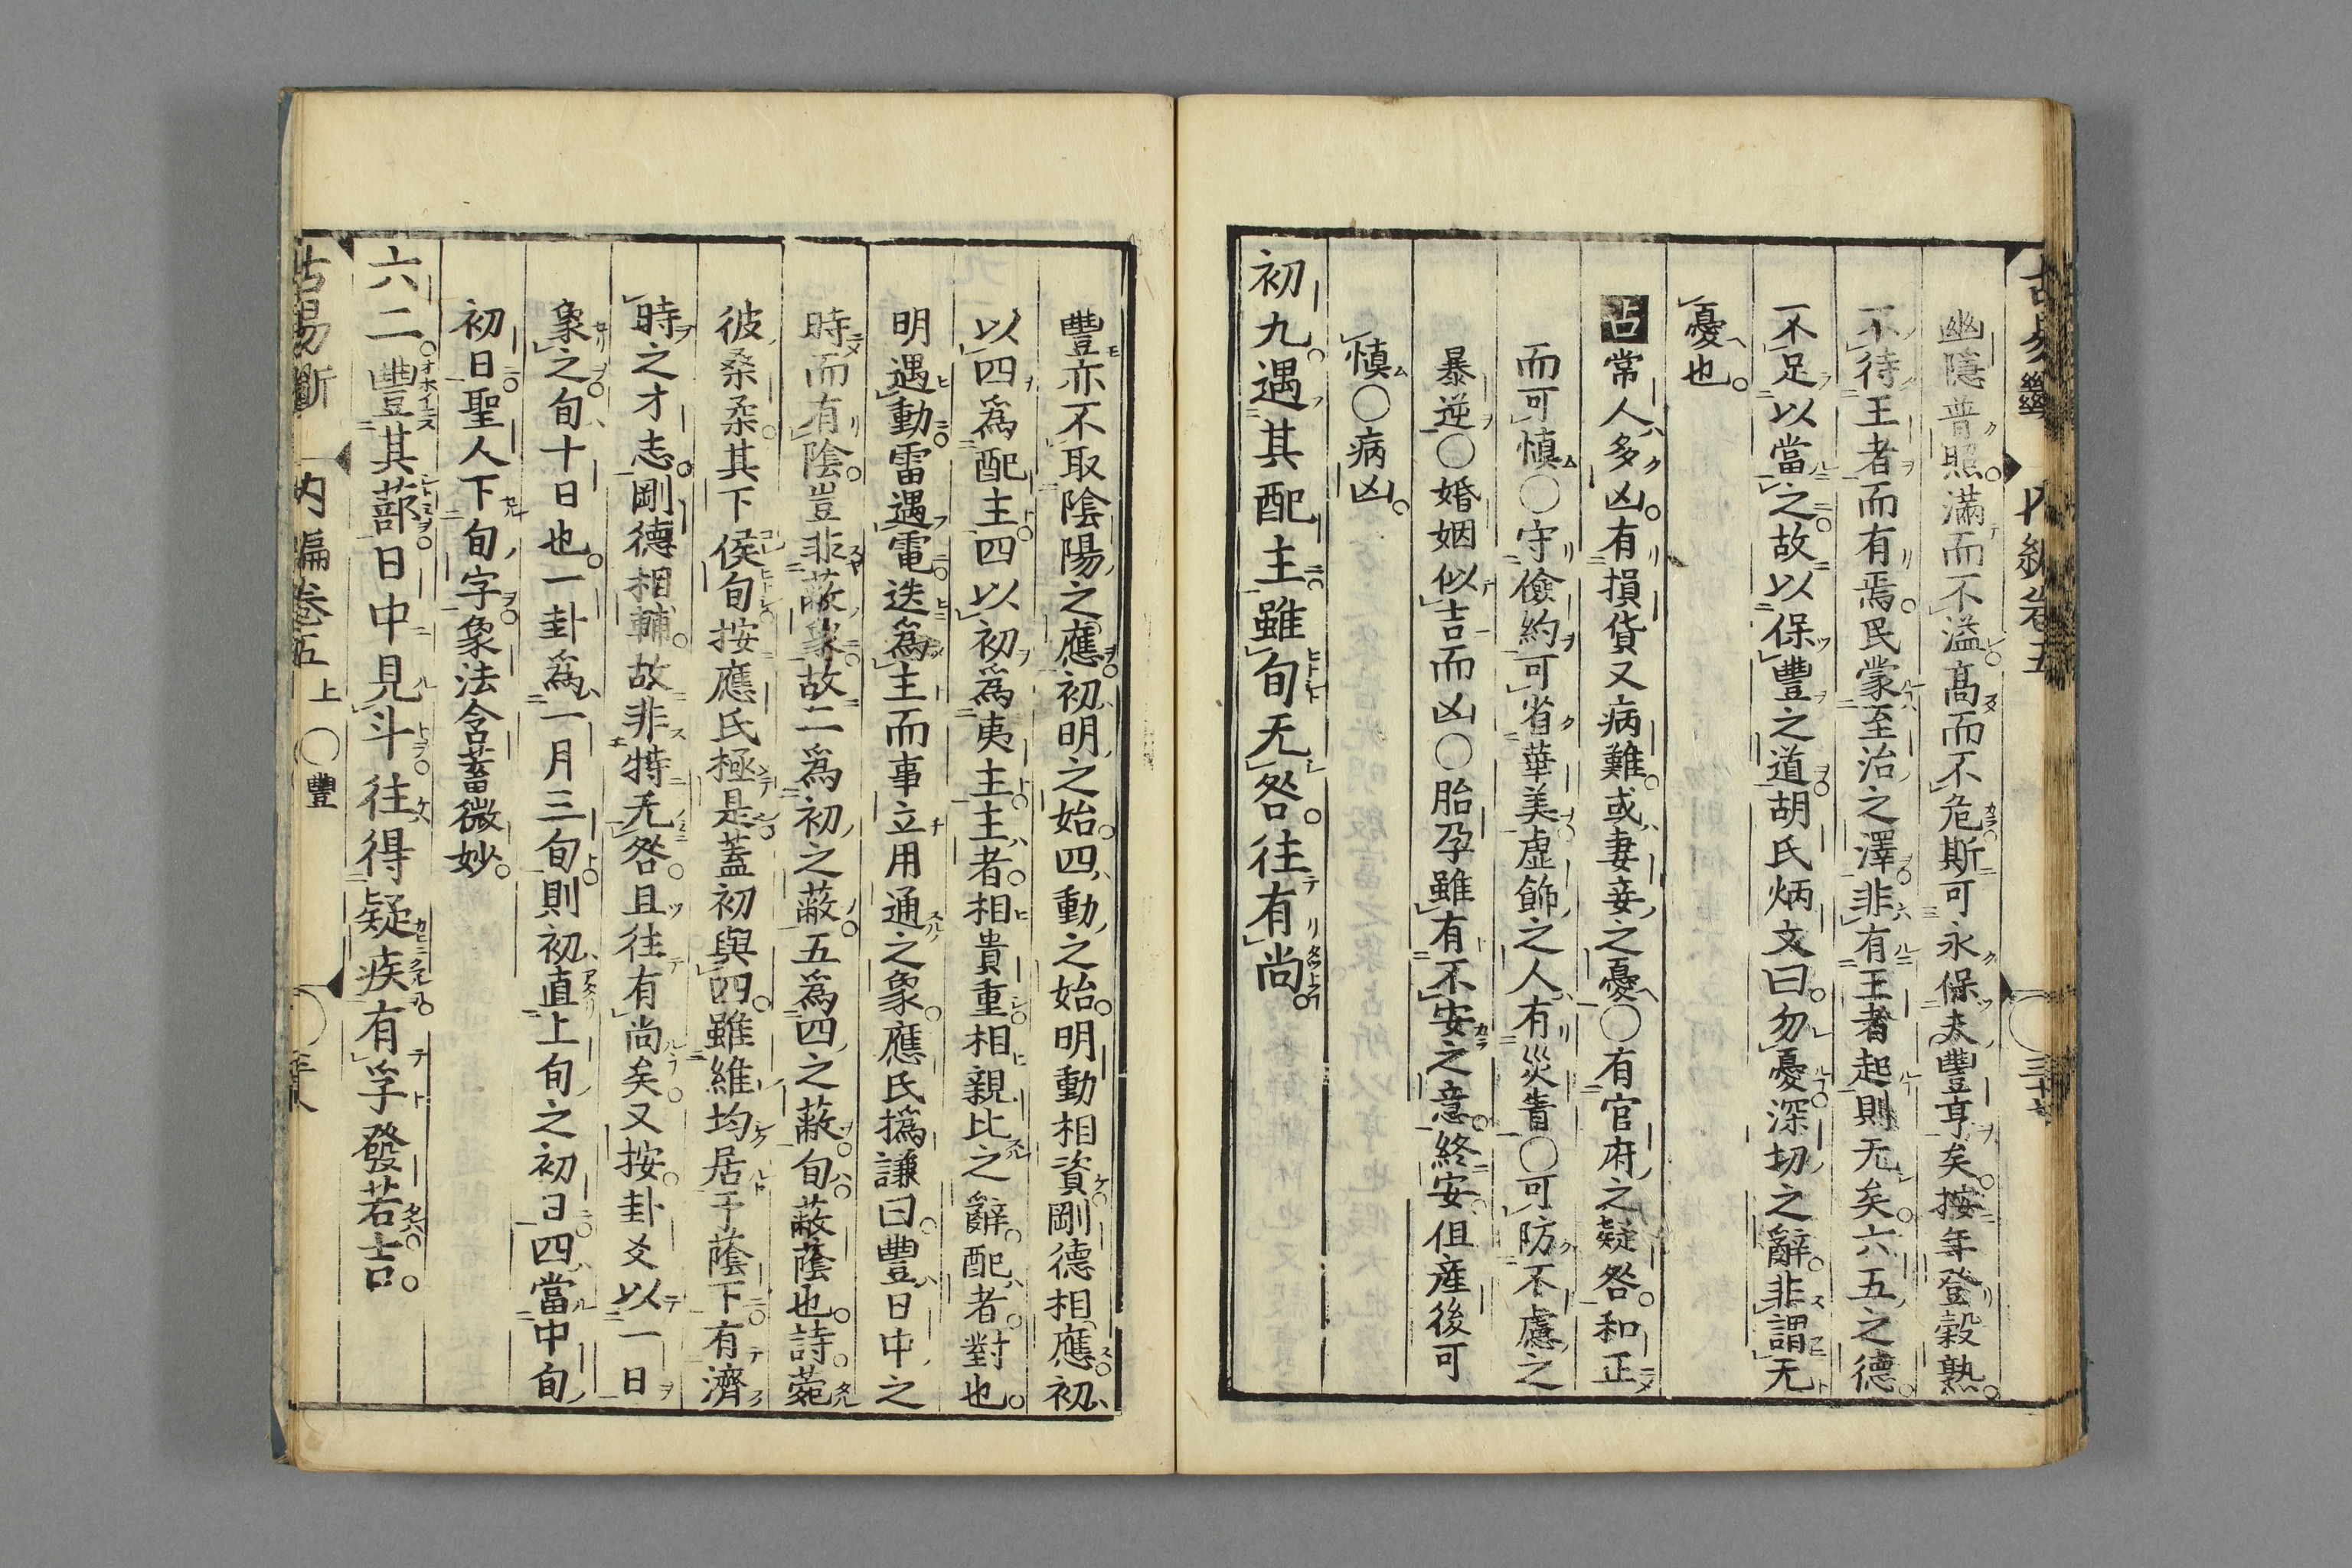 幽隱普照滿而不溢高而不危斯可永保夫豐亨矣按年登穀熟
不待王者而有焉民蒙至治之澤非有王者起則无矣六五之德
不足以當之故以保豐之道胡氏炳文曰勿憂深切之辭非謂无
憂也
占常人多凶有損貨又病難或妻妾之憂○有官府之疑咎和正
而可慎○守儉約可省華美虛飾之人有災眚○可防不慮之
暴逆○婚姻似吉而凶○胎孕雖有不安之意終安但産後可
慎○病凶
初九遇其配主雖旬无咎往有尚
豐亦不取陰陽之應初明之始四動之始明動相資剛德相應初
以四爲配主四以初爲夷主主者相貴重相親比之辭配者對也
明遇動雷遇電迭爲主而事立用通之象應氏撝謙曰豐日中之
時而有陰豈非蔽象故二爲初之蔽五爲四之蔽旬蔽蔭也詩菀
彼桑柔其下侯旬按應氏極是蓋初與四雖維均居于蔭下有濟
時之才志剛德相輔故非特无咎且往有尚矣又按卦爻以一日
象之旬十日也一卦爲一月三旬則初直上旬之初日四當中旬
初日聖人下旬字象法含蓄微妙
六二豐其蔀日中見斗往得疑疾有孚發若吉
古易斷 内編卷五上 ○豐